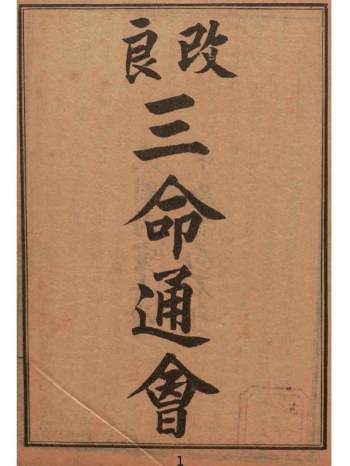 改良
三命通會
1